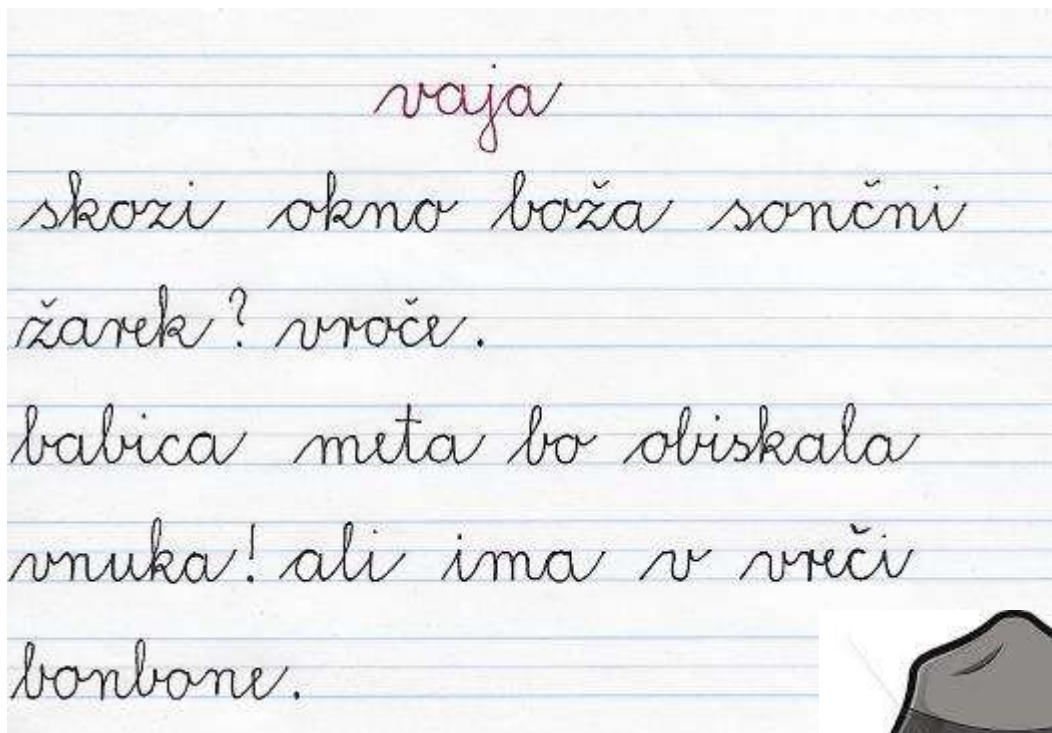 vaja
skozi okno boža sončni
žarek? vroče.
babica meta bo obiskala
vnuka! ali ima v vreči
bonbone.